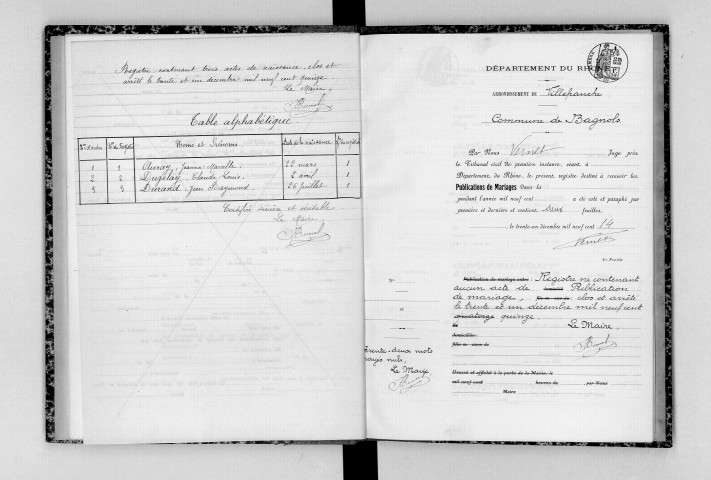 Registre contenant trois actes de naissance, clos et
arrêté le trente et un décembre mil neuf cent quinze
Le Maire,
Table alphabétique
Noms et Prénoms Date de la naissance
1 1 Auray, Jeanne Marcelle 22 mars 1
2 2 Dugelay, Claude Louis 2 avril 1
3 3 Durand, Jean Raymond 26 juillet 1
Certifiée sincère et véritable
Le Maire,
DÉPARTEMENT DU RHÔNE
ARRONDISSEMENT DE Villefranche
Commune de Bagnols
Par Nous Vernet Juge près
le Tribunal civil de première instance, séant à
Département du Rhône, le présent registre destiné à recevoir les
Publications de Mariages dans la
pendant l'année mil neuf cent a été coté et paraphé par
première et dernière et contient deux feuilles.
, le trente-un décembre mil neuf cent 14
Vernet
1er Feuille
N°
Publication de mariage entre : Registre ne contenant
aucun acte de Publication
de mariage, clos et arrêté
le trente et un décembre mil neuf cent
et
quatorze quinze.
Le Maire,
domicilié
fille de
trente-deux mots
rayés nuls.
Le Maire
Dressé et affiché à la porte de la Mairie, le
mil neuf cent heures du par Nous
Maire